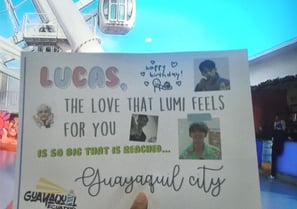 LUCAS,
happy
birthday!
THE LOVE THAT LUMI FEELS
FOR YOU
IS SO BIG THAT IS REACHED...
Guayaquil city
GUAYAQUIL
ECUADOR